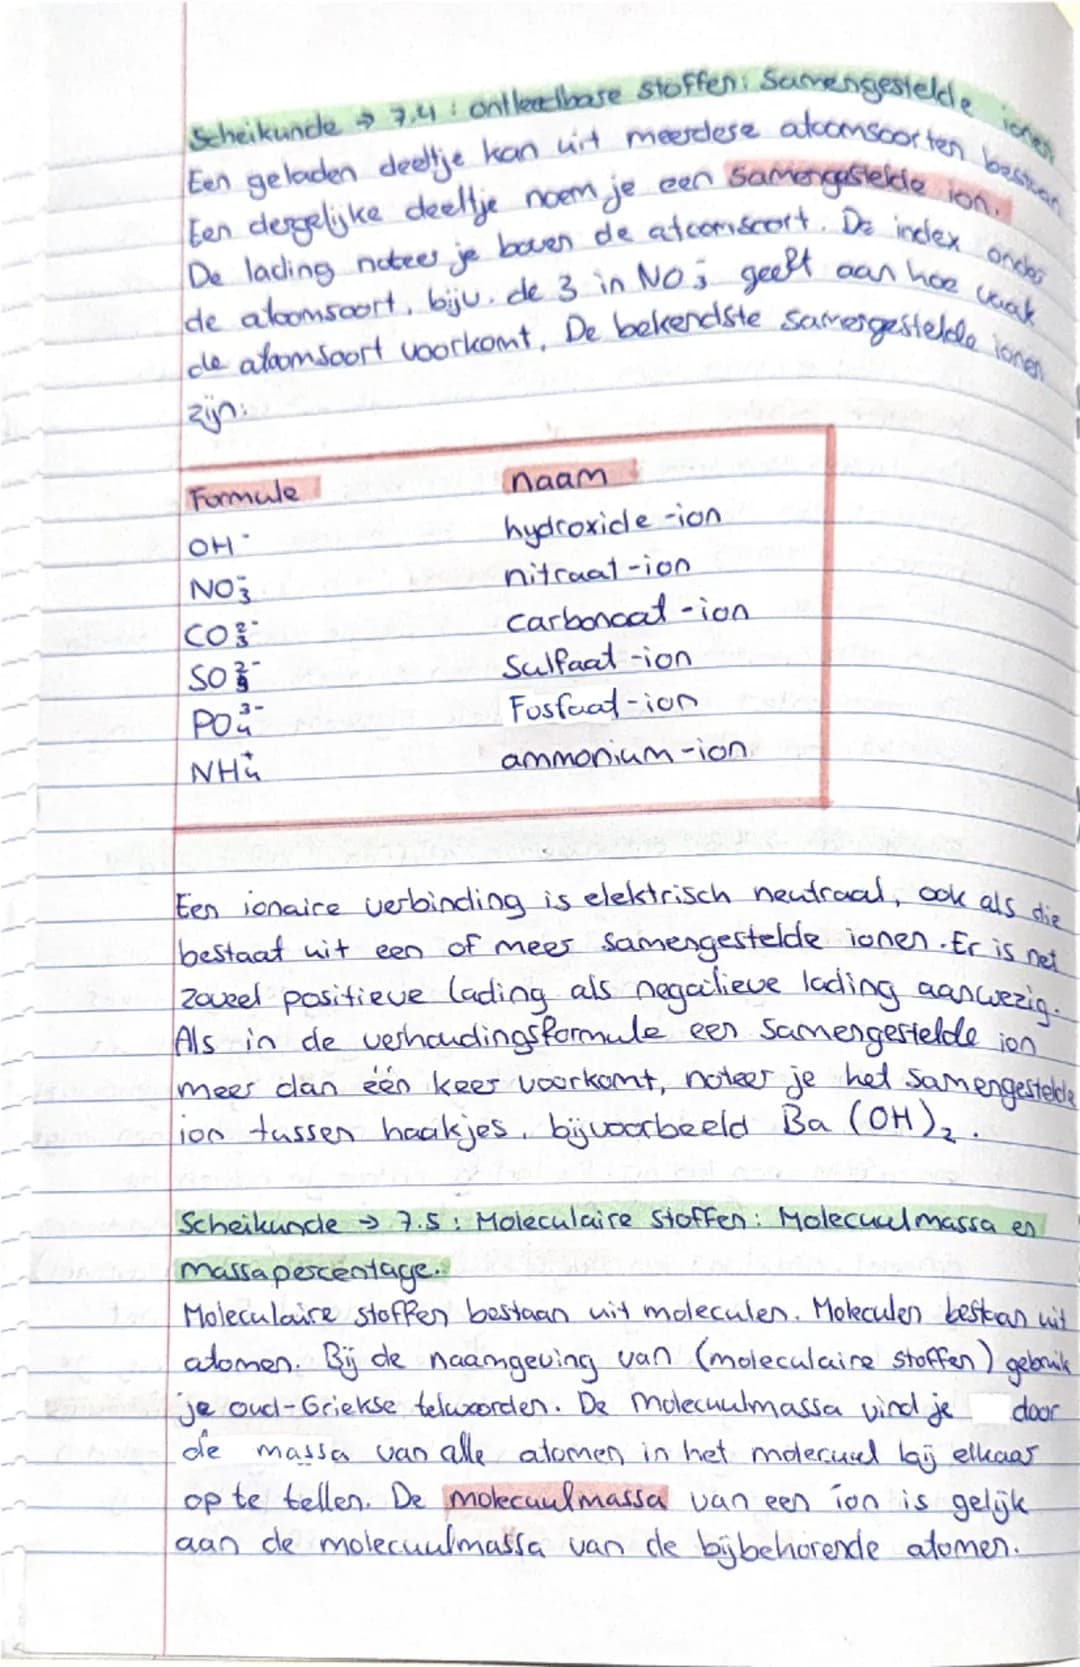 Scheikunde → 7.4 : ontleedbare stoffen: Samengestelde ionen
Een geladen deeltje kan uit meerdere atoomsoorten bestaan
Een dergelijke deeltje noem je een samengestelde ion.
De lading noteer je boven de atoomsoort. De index onder
de atoomsoort, bijv. de 3 in NO₃⁻ geeft aan hoe vaak
de atoomsoort voorkomt. De bekendste samengestelde ionen
zijn:
Formule naam
OH⁻ hydroxide-ion
NO₃⁻ nitraat-ion
CO₃²⁻ carbonaat-ion
SO₄²⁻ Sulfaat-ion
PO₄³⁻ Fosfaat-ion
NH₄⁺ ammonium-ion
Een ionaire verbinding is elektrisch neutraal, ook als die
bestaat uit een of meer samengestelde ionen. Er is net
zoveel positieve lading als negatieve lading aanwezig.
Als in de verhoudingsformule een samengestelde ion
meer dan één keer voorkomt, noteer je het samengestelde
ion tussen haakjes, bijvoorbeeld Ba (OH)₂.
Scheikunde → 7.5 : Moleculaire Stoffen: Molecuulmassa en
massapercentage.
Moleculaire stoffen bestaan uit moleculen. Moleculen bestaan uit
atomen. Bij de naamgeving van (moleculaire stoffen) gebruik
je oud-Griekse telwoorden. De Molecuulmassa vind je door
de massa van alle atomen in het molecuul bij elkaar
op te tellen. De molecuulmassa van een ion is gelijk
aan de molecuulmassa van de bijbehorende atomen.